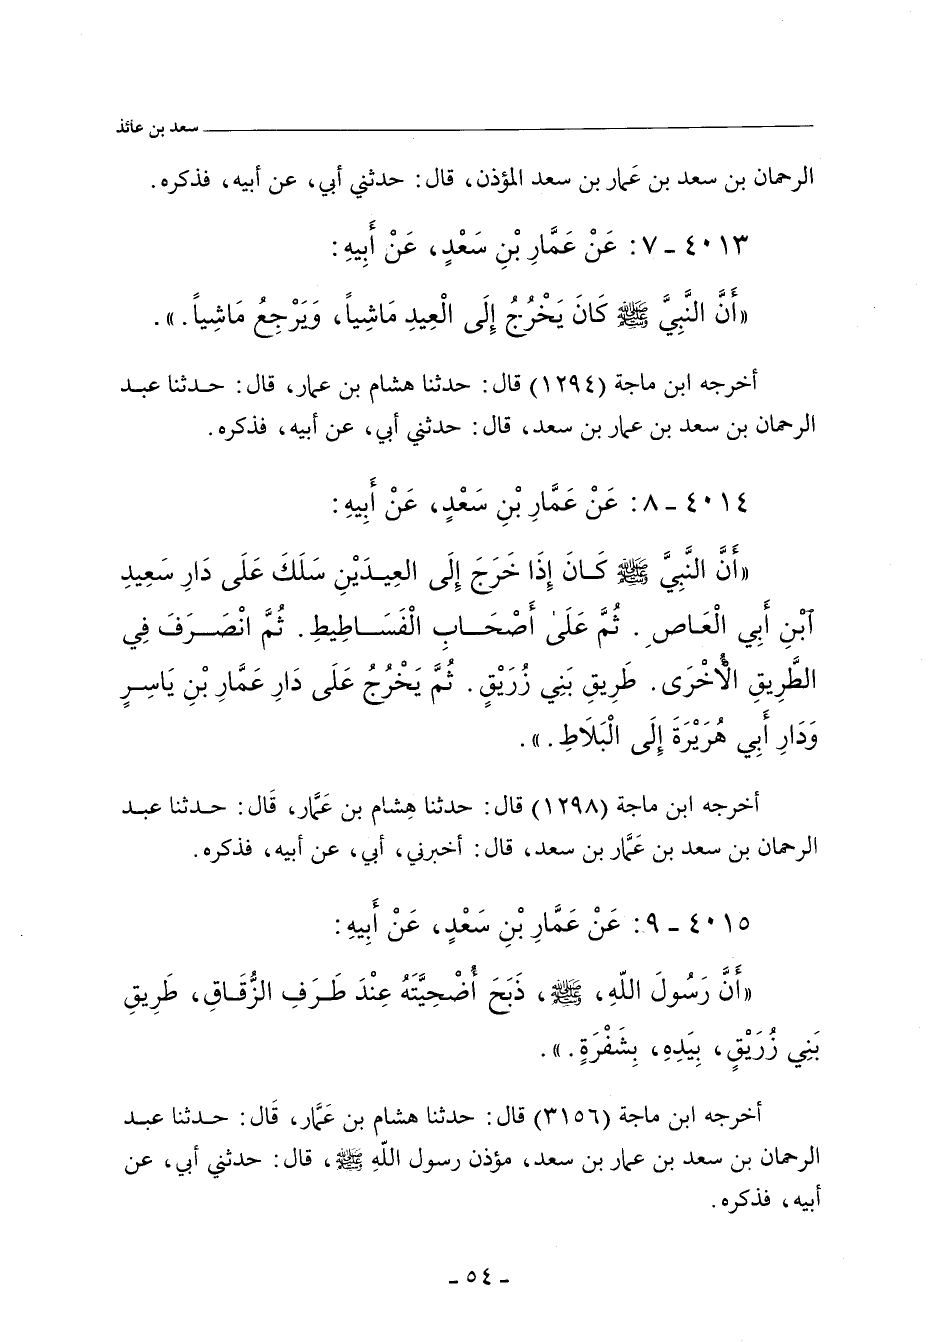 سعد بن عائذ
الرحمان بن سعد بن عَمار بن سعد المؤذن، قال: حدثني أبي، عن أبيه، فذكره.
٤٠١٣ - ٧: عَنْ عَمَّارِ بْنِ سَعْدٍ، عَنْ أَبِيهِ:
«أَنَّ النَّبِيَّ ﷺ كَانَ يَخْرُجُ إِلَى الْعِيدِ مَاشِياً، وَيَرْجِعُ مَاشِياً.».
أخرجه ابن ماجة (١٢٩٤) قال: حدثنا هشام بن عمار، قال: حدثنا عبد
الرحمان بن سعد بن عمار بن سعد، قال: حدثني أبي، عن أبيه، فذكره.
٤٠١٤ - ٨: عَنْ عَمَّارِ بْنِ سَعْدٍ، عَنْ أَبِيهِ:
«أَنَّ النَّبِيَّ ﷺ كَانَ إِذَا خَرَجَ إِلَى العِيدَيْنِ سَلَكَ عَلَى دَارِ سَعِيدِ
آبْنِ أَبِي الْعَاصِ. ثُمَّ عَلَىٰ أَصْحَابِ الْفَسَاطِيطِ. ثُمَّ انْصَرَفَ فِي
الطَّرِيقِ الْأُخْرَى. طَرِيقِ بَنِي زُرَيْقٍ. ثُمَّ يَخْرُجُ عَلَى دَارِ عَمَّارِ بْنِ يَاسِرٍ
وَدَارِ أَبِي هُرَيْرَةَ إِلَى الْبَلَاطِ.».
أخرجه ابن ماجة (١٢٩٨) قال: حدثنا هِشام بن عَمَّار، قَال: حدثنا عبد
الرحمان بن سعد بن عَمَّار بن سعد، قال: أخبرني، أبي، عن أبيه، فذكره.
٤٠١٥ - ٩: عَنْ عَمَّارِ بْنِ سَعْدٍ، عَنْ أَبِيهِ:
«أَنَّ رَسُولَ اللّهِ، ﷺ، ذَبَحَ أُضْحِيَّتَهُ عِنْدَ طَرَفِ الزُّقَاقِ، طَرِيقِ
بَنِي زُرَيْقٍ، بِيَدِهِ، بِشَفْرَةٍ.».
أخرجه ابن ماجة (٣١٥٦) قال: حدثنا هشام بن عَمَّار، قَال: حدثنا عبد
الرحمان بن سعد بن عمار بن سعد، مؤذن رسول اللّهِ ﷺ، قال: حدثني أبي، عن
أبيه، فذكره.
- ٥٤ -